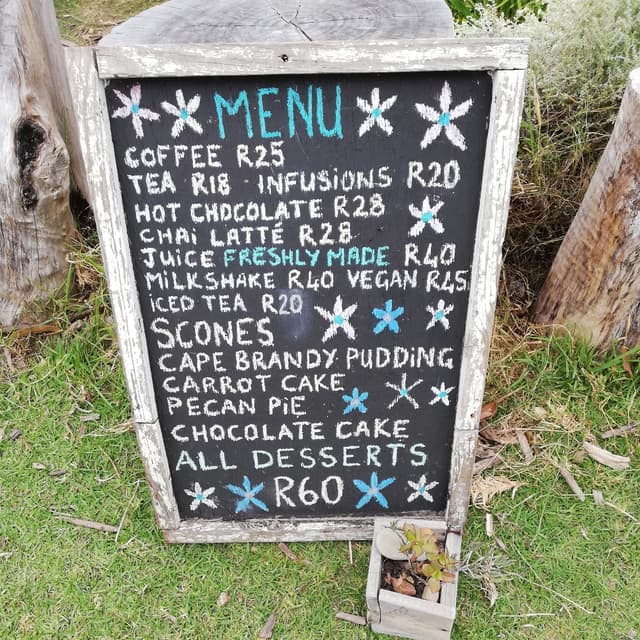 MENU
COFFEE R25
TEA R18 INFUSIONS R20
HOT CHOCOLATE R28
CHAi LATTÉ R28
JUICE FRESHLY MADE R40
MiLKSHAKE R40 VEGAN R45
iCED TEA R20
SCONES
CAPE BRANDY PUDDiNG
CARROT CAKE
PECAN PiE
CHOCOLATE CAKE
ALL DESSERTS
R60